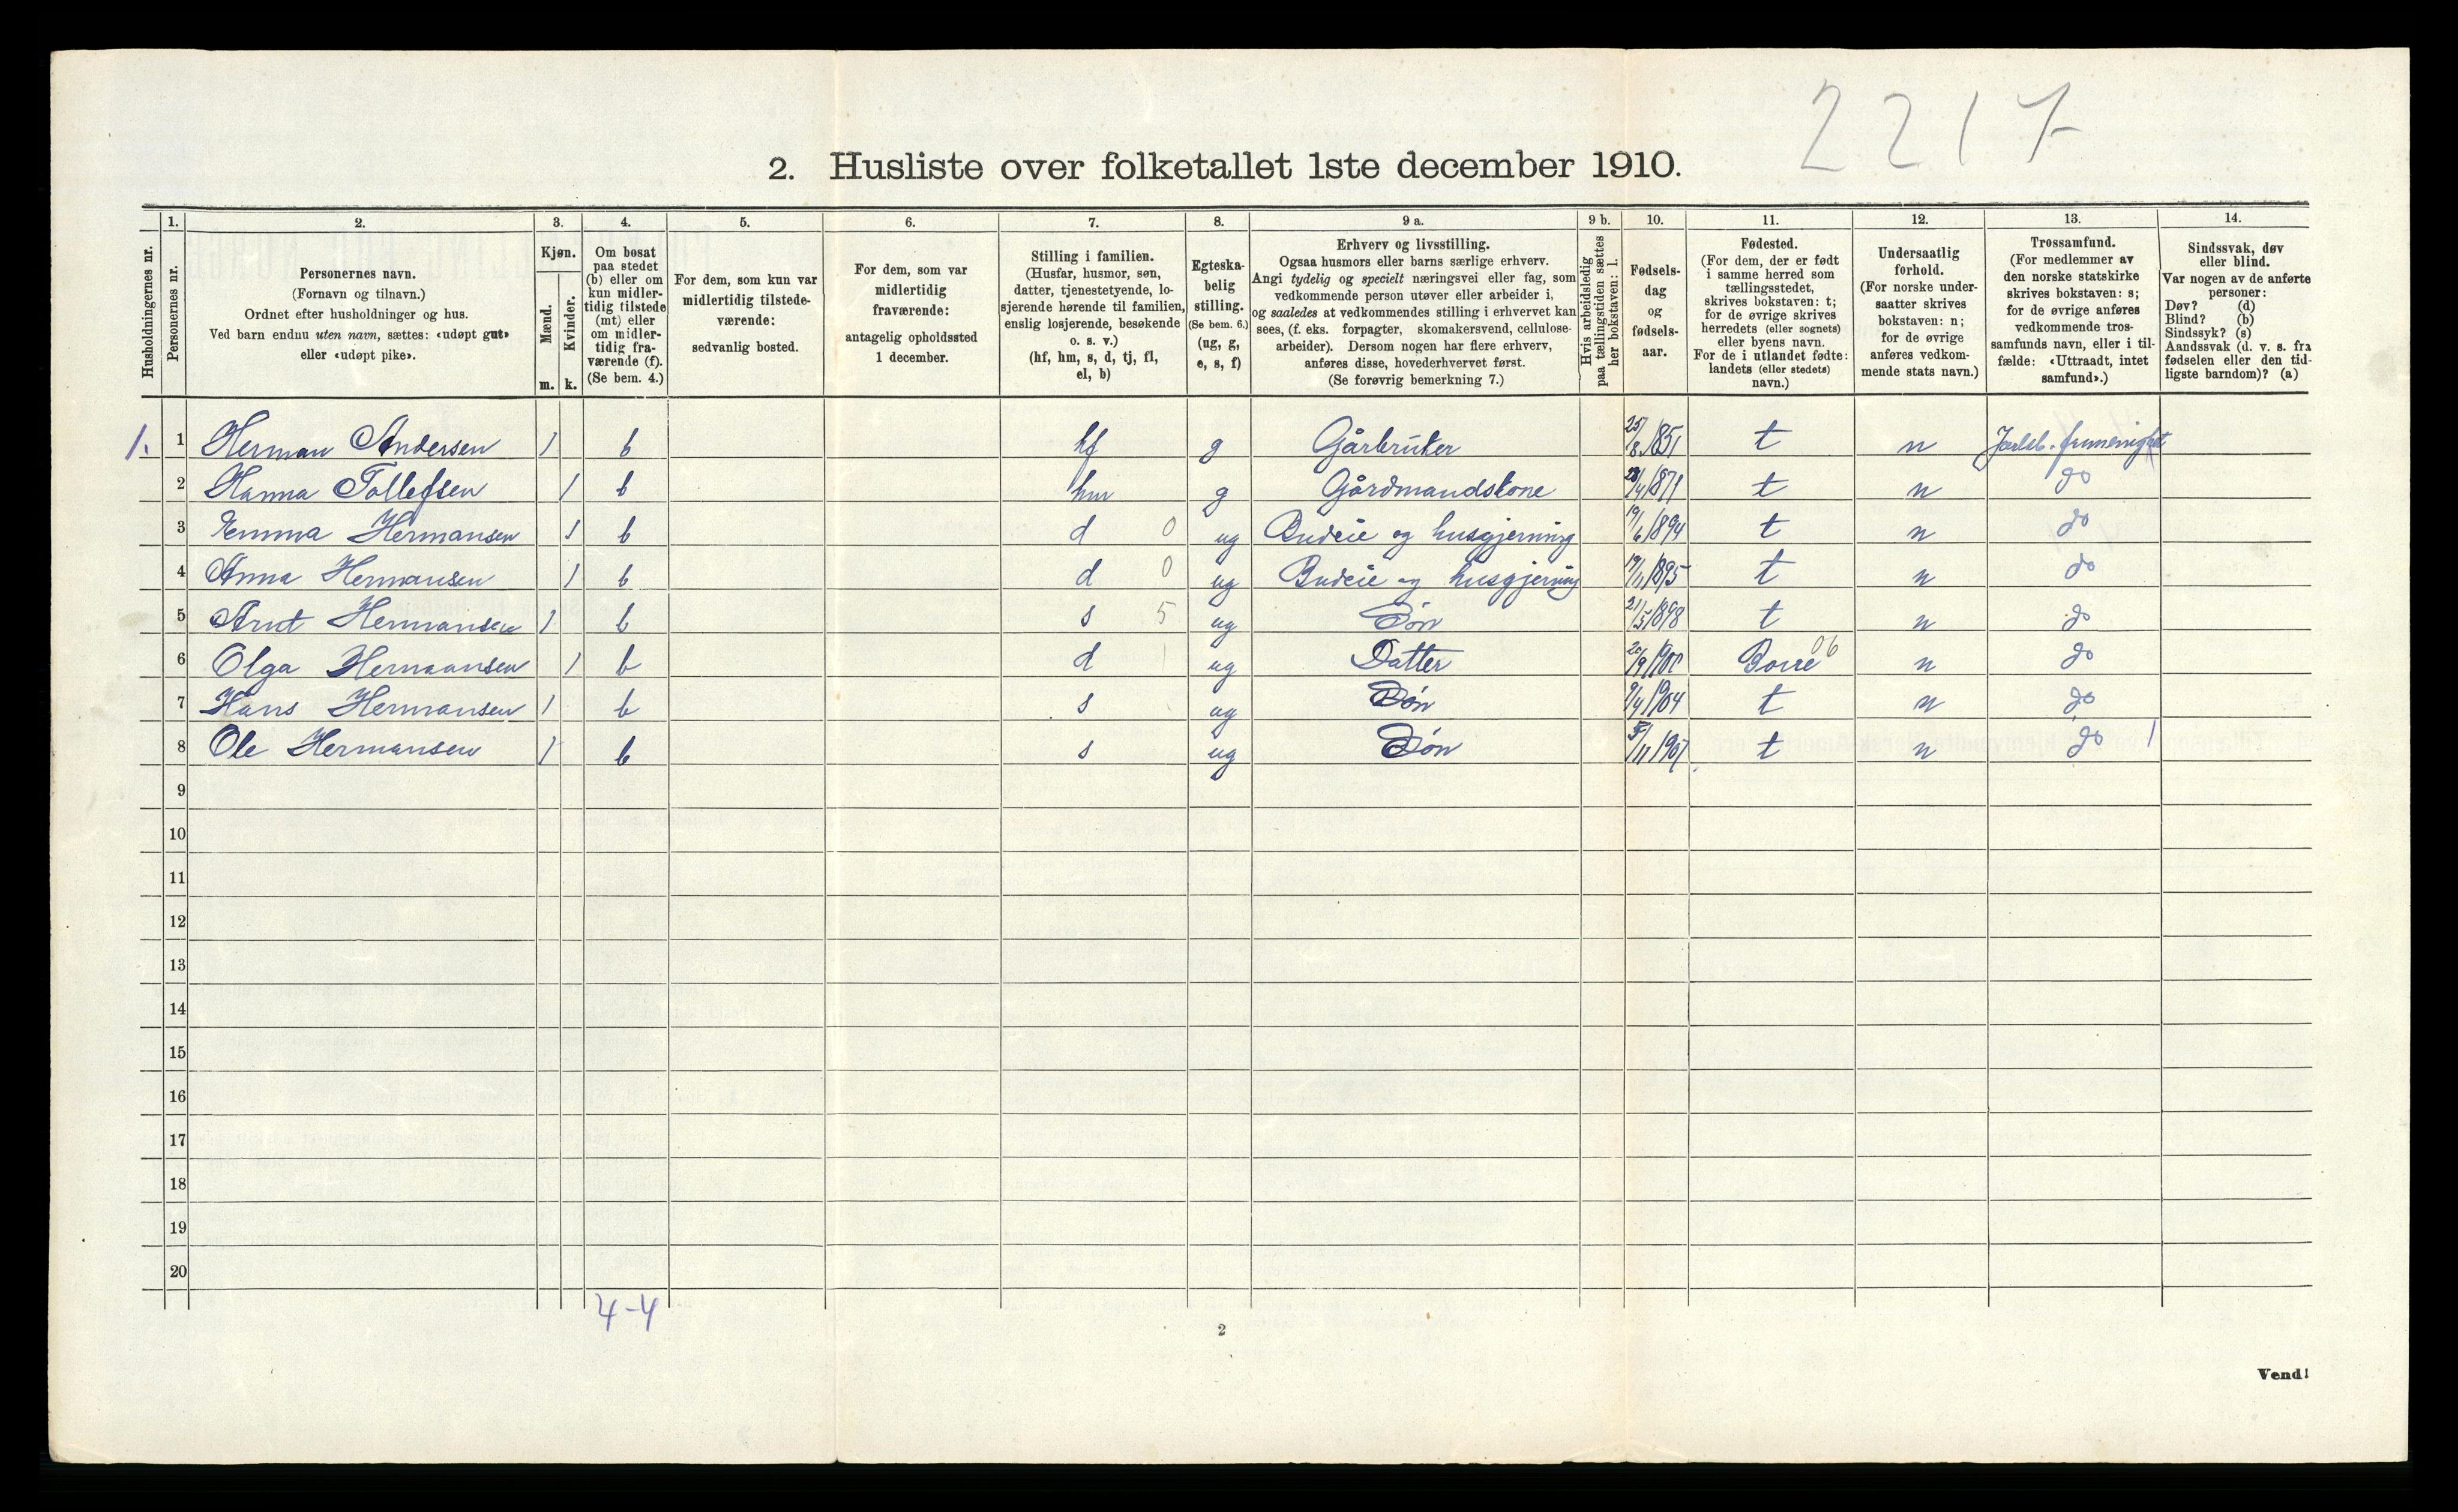 2217
2. Husliste over folketallet 1ste december 1910.
Husholdningernes nr.
1.
Personernes nr.
2.
Personernes navn.
(Fornavn og tilnavn.)
Ordnet efter husholdninger og hus.
Ved barn endnu uten navn, sættes: «udøpt gut»
eller «udøpt pike».
3.
Kjøn.
Mænd.
Kvinder.
m. k.
4.
Om bosat
paa stedet
(b) eller om
kun midler-
tidig tilstede
(mt) eller
om midler-
tidig fra-
værende (f).
(Se bem. 4.)
5.
For dem, som kun var
midlertidig tilstede-
værende:
sedvanlig bosted.
6.
For dem, som var
midlertidig
fraværende:
antagelig opholdssted
1 december.
7.
Stilling i familien.
(Husfar, husmor, søn,
datter, tjenestetyende, lo-
sjerende hørende til familien,
enslig losjerende, besøkende
o. s. v.)
(hf, hm, s, d, tj, fl,
el, b)
8.
Egteska-
belig
stilling.
(Se bem. 6.)
(ug, g,
e, s, f)
9 a.
Erhverv og livsstilling.
Ogsaa husmors eller barns særlige erhverv.
Angi tydelig og specielt næringsvei eller fag, som
vedkommende person utøver eller arbeider i,
og saaledes at vedkommendes stilling i erhvervet kan
sees, (f. eks. forpagter, skomakersvend, cellulose-
arbeider). Dersom nogen har flere erhverv,
anføres disse, hovederhvervet først.
(Se forøvrig bemerkning 7.)
9 b.
Hvis arbeidsledig
paa tællingstiden sættes
her bokstaven: l.
10.
Fødsels-
dag
og
fødsels-
aar.
11.
Fødested.
(For dem, der er født
i samme herred som
tællingsstedet,
skrives bokstaven: t;
for de øvrige skrives
herredets (eller sognets)
eller byens navn.
For de i utlandet fødte:
landets (eller stedets)
navn.)
12.
Undersaatlig
forhold.
(For norske under-
saatter skrives
bokstaven: n;
for de øvrige
anføres vedkom-
mende stats navn.)
13.
Trossamfund.
(For medlemmer av
den norske statskirke
skrives bokstaven: s;
for de øvrige anføres
vedkommende tros-
samfunds navn, eller i til-
fælde: «Uttraadt, intet
samfund».)
14.
Sindssvak, døv
eller blind.
Var nogen av de anførte
personer:
Døv? (d)
Blind? (b)
Sindssyk? (s)
Aandssvak (d. v. s. fra
fødselen eller den tid-
ligste barndom)? (a)
1. 1 Herman Andersen 1 b hf g Gårbruker 25/8 1851 t n Jarlsb.
2 Hanna Tollefsen 1 b hm g Gårdmandskone 1871 t n do
3 Emma Hermansen 1 b d 0 ug Budeie og husgjerning 19/6 1894 t n do
4 Anna Hermansen 1 b d 0 ug Budeie og husgjerning 19/11 1895 t n do
5 Arnt Hermansen 1 b s 5 ug Søn 21/5 1898 t n do
6 Olga Hermansen 1 b d 1 ug Datter 20/9 1901 Borre 06 n do
7 Hans Hermansen 1 b s ug Søn 9/4 1904 t n do
8 Ole Hermansen 1 b s ug Søn 5/11 1907 t n do 1
9
10
11
12
13
14
15
16
17
18
19
20
4-4
2
Vend!